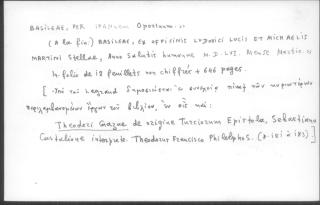 BASILEAE, PER IOANNEM Oporinum.
(A la fin:) BASILEAE, EX OFFICINIS LUDOVICI LUCIS ET MICHAELIS
MARTINI Stellae, Anno Salutis humanae M.D.LVI. Mense Martio.
4. folio de 18 feuillets non chiffrés + 646 pages.
[ Legrand ἡ συνέχεια τῶν
τοῦ βιβλίου, ἐν οἷς καὶ:
Theodori Gazae de origine Turcarum Epistola, Sebastiano
Castalione interprete. Theodorus Francisco Philelpho S. (σ. 181 à 183).]